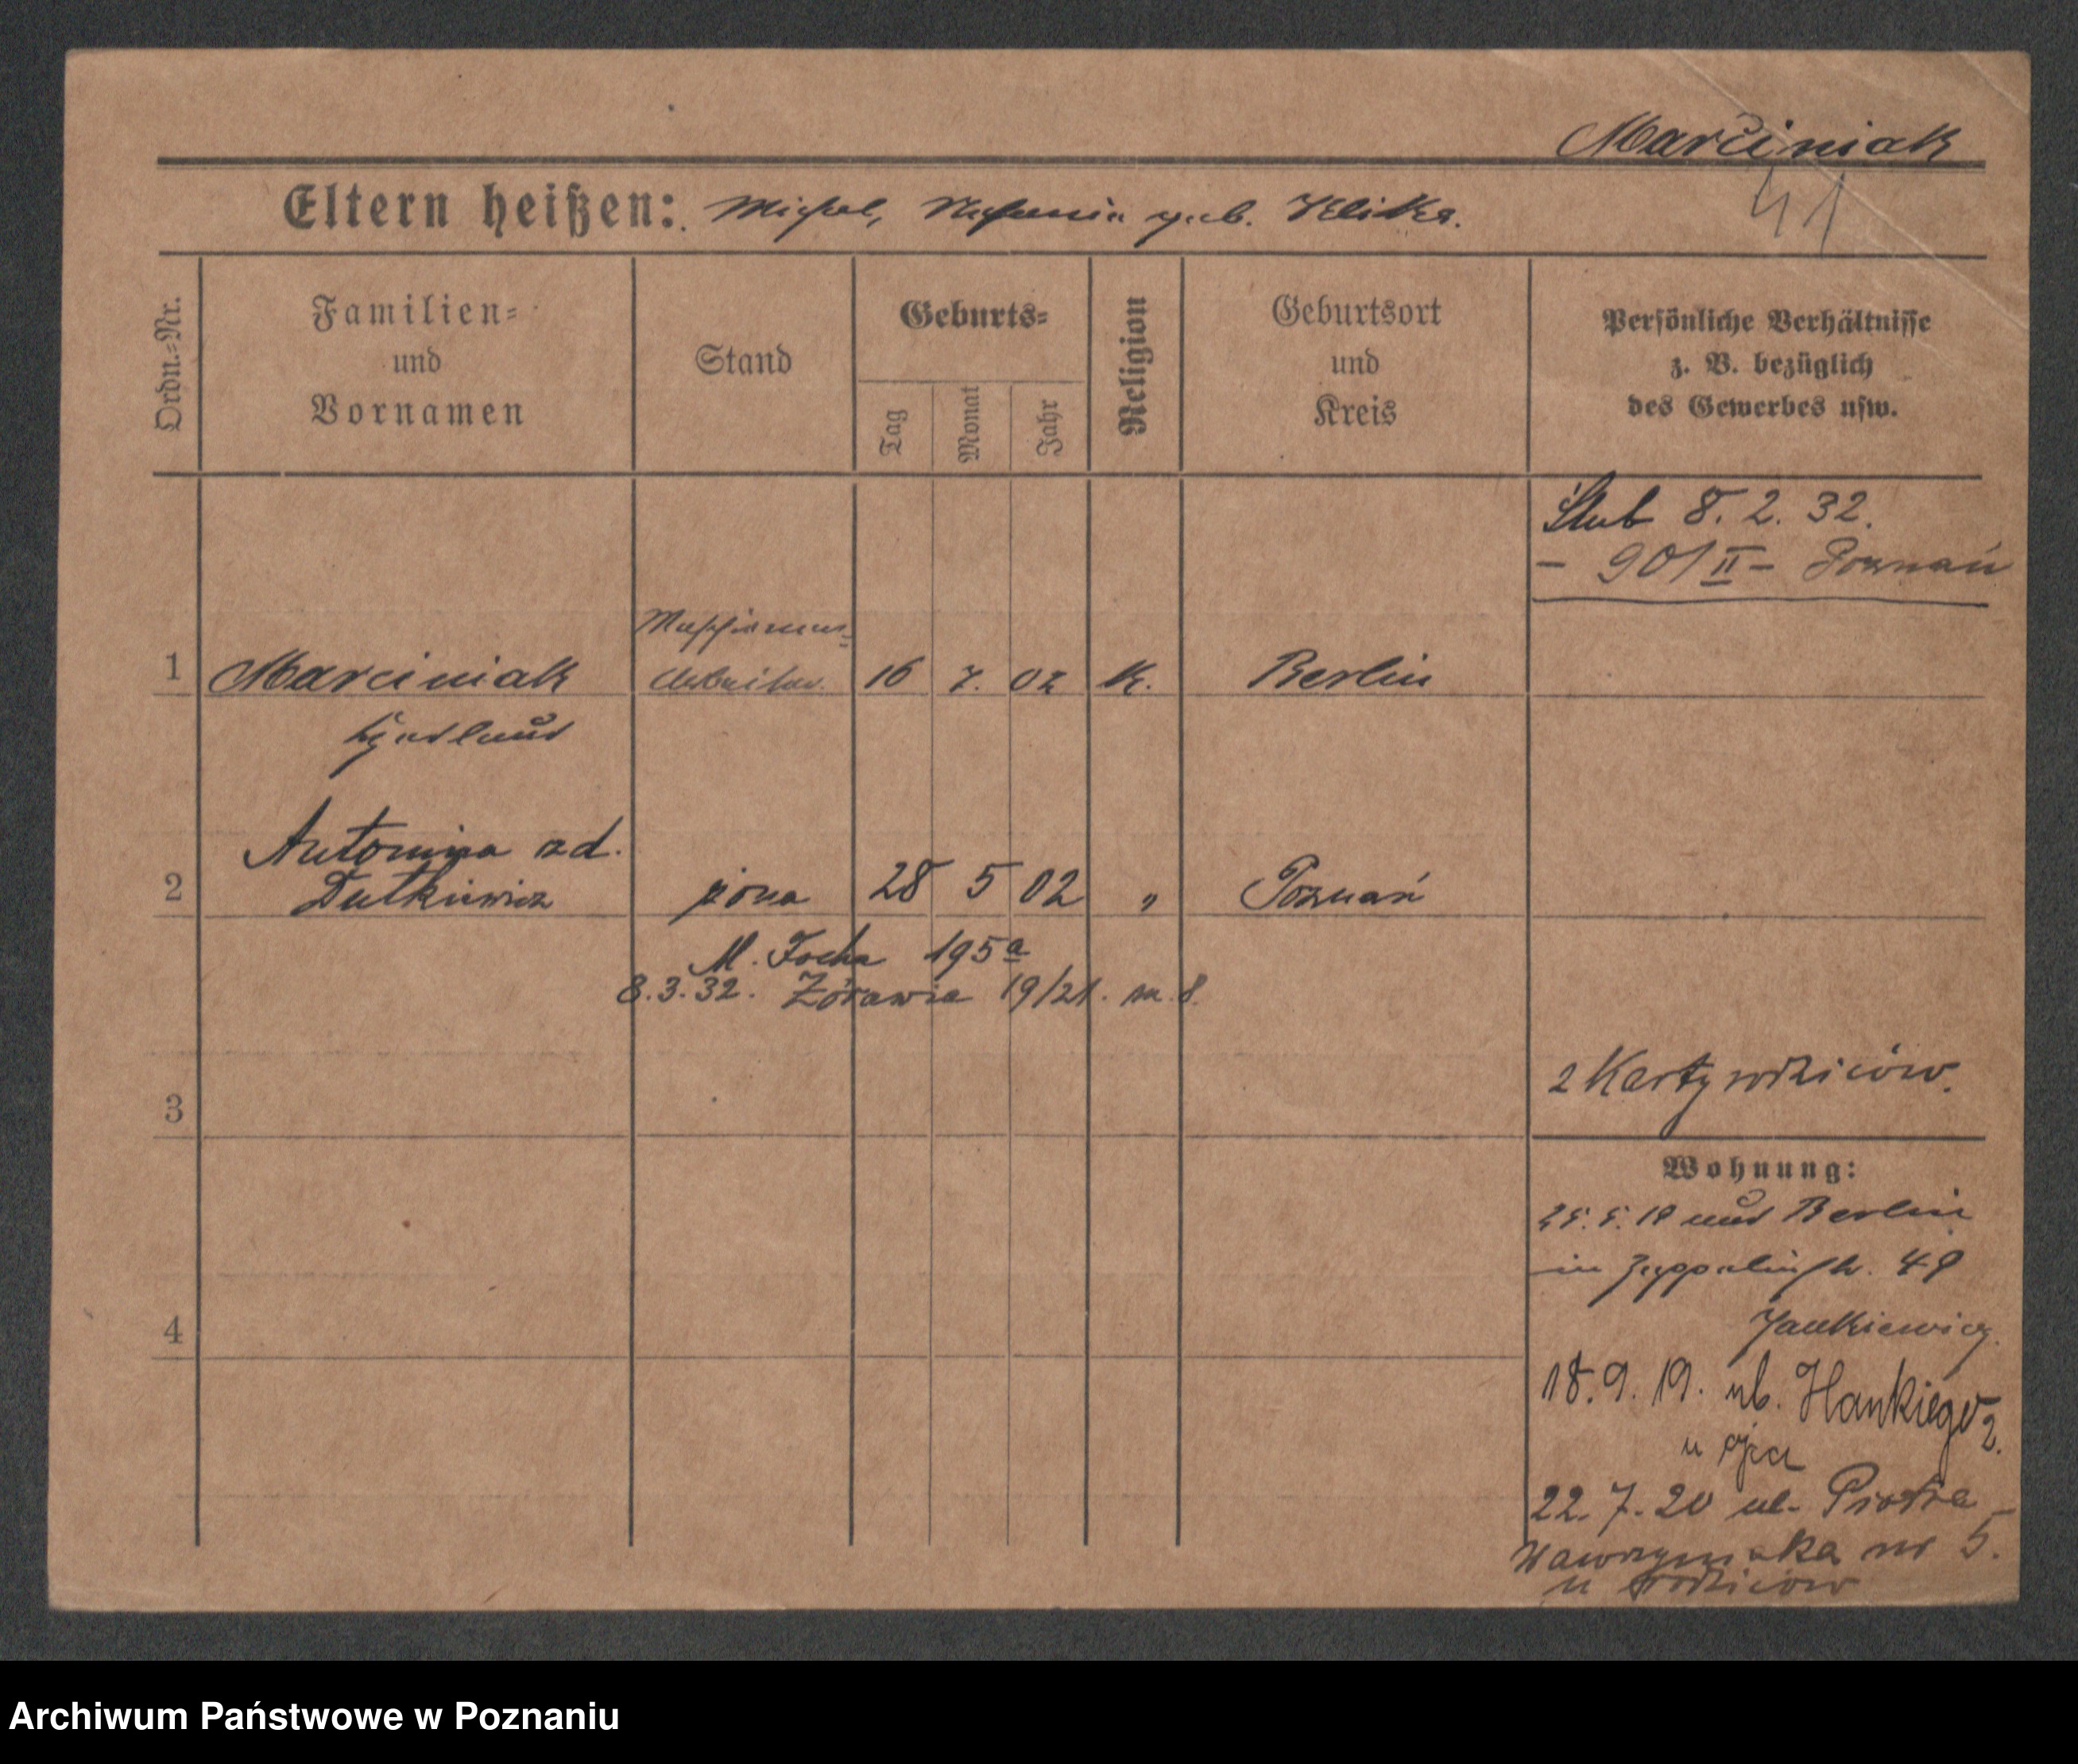 Marciniak
41
Eltern heißen: Michal, geb. Klika.
Ordn.-Nr.
Familien-
und
Vornamen
Stand
Geburts-
Tag
Monat
Jahr
Religion
Geburtsort
und
Kreis
Persönliche Verhältnisse
z. B. bezüglich
des Gewerbes usw.
Ślub 8. 2. 32.
- 901/II - Poznań
1 Marciniak Arbeiter. 16 7. 02 K. Berlin
Antonina zd.
2 Dutkiewicz żona 28 5 02 " Poznań
M. Focha 195a
8.3.32. Żórawia 19/21. m. 8.
2 Karty rodziców.
3
Wohnung:
25. 5. 19 aus Berlin
in Zeppelinstr. 49
Jankiewicz.
4
18. 9. 19. ul. Hankiego 2.
u ojca
22. 7. 20 ul. Piotra
Wawrzyniaka nr 5.
u rodziców
Archiwum Państwowe w Poznaniu